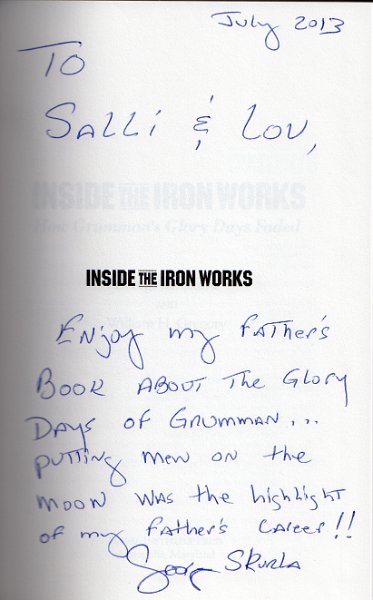 July 2013
To
Salli & Lou,
INSIDE THE IRON WORKS
How Grumman's Glory Days Faded
INSIDE THE IRON WORKS
Enjoy my father's
Book about the Glory
Days of Grumman...
putting men on the
moon was the highlight
of my father's career!!
George Skurla